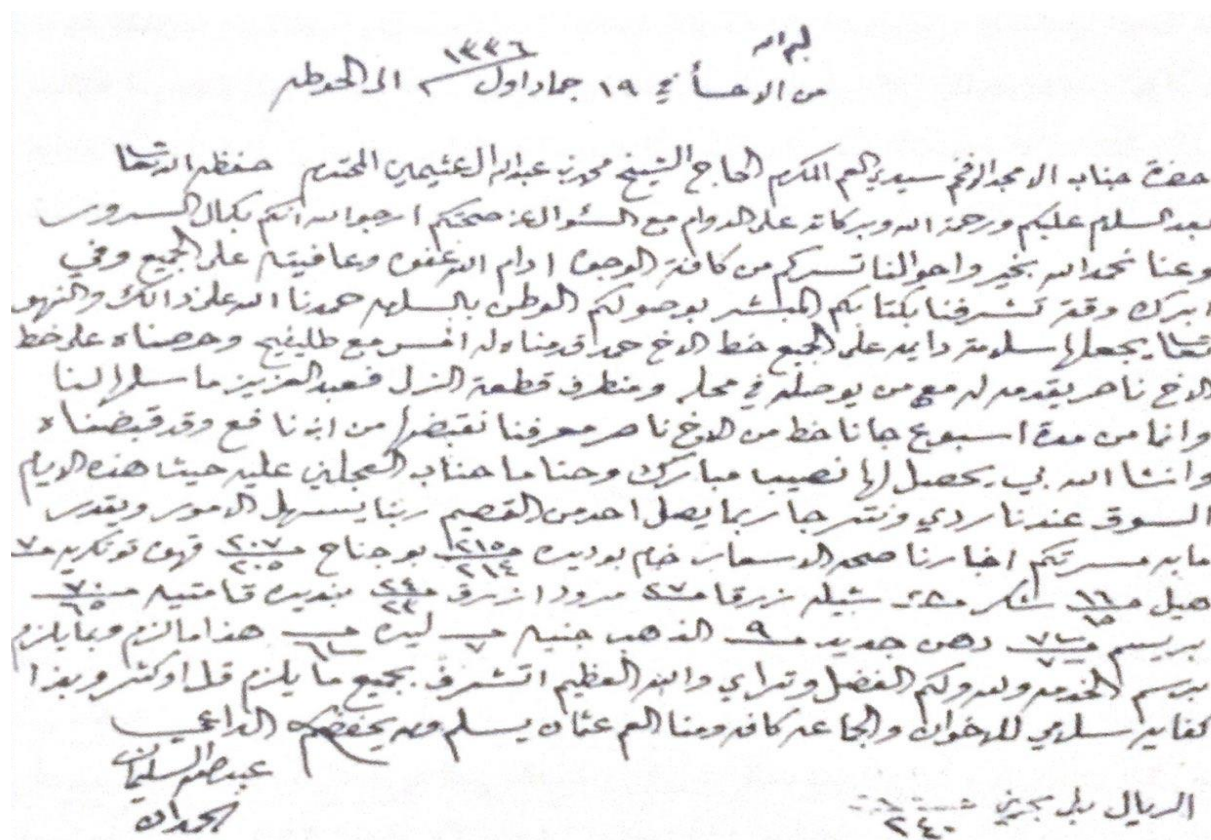 بم الله
١٣٣٦
من الاحسأ في ١٩ جماد اول ٢ الى الحوطه
حضرة جناب الامجد الافخم سيدي العم المكرم الحاج الشيخ محمد بن عبدالله العثيمين المحترم حفظه الله تعالى
بعد السلام عليكم ورحمة الله وبركاته على الدوام مع السئوال عن صحتكم ارجوا الله انكم بكمال السرور
وعنا نحمد الله بخير واحوالنا تسركم من كافة الوجوه ادام الله عفوه وعافيته على الجميع وفي
ابرك وقت تشرفنا بكتابكم المبشر بوصولكم الوطن بالسلامه حمدنا الله على ذالك والنهو
تعالى يجعلها سلامة دايمه على الجميع خط الاخ حمد قدمناه له امس مع طليفيح وحرصناه على خط
الاخ ناصر يقدمه له مع من يوصله في محله ومنطرف قطعة النزل فعبدالعزيز ما سلمها لنا
وانما من مدة اسبوع جانا خط من الاخ ناصر معرفنا نقبضها من ابن نافع وقد قبضناه
وانشا الله بي يحصل لها نصيب مبارك وحنا ما حناب العجلين عليه حيث هذه الايام
السوق عندنا ردي ونترجا ربما يصل احد من القصيم ربنا يسهل الامور ويقدر
ما به مسرتكم اخبارنا صحه الاسعار خام بوديك ٢١٥ ٢١٤ بوجناح ٢٠٧ ٢٠٥ قهوه توتكريه ٧
هيل ١٦ ١٥ سكر شيله زرقا ٢٧ مرودا ازرق ٢٤ ٢٣ ٧٠ ٦٥
بريسم ٧ دهن جديد ٩ الذهب جنيه ليره هذا مالزم وبما يلزم
برسم الخدمه ولدولكم الفضل وتراي والله العظيم اتشرف بجميع ما يلزم قل او كثر وبهذا
كفايه سلامي للاخوان والجماعه كافه ومنا العم عثمان يسلم ودم بحفظكم الداعي
عبدالله السليمان
الحمدان
الريال ٢٤٠